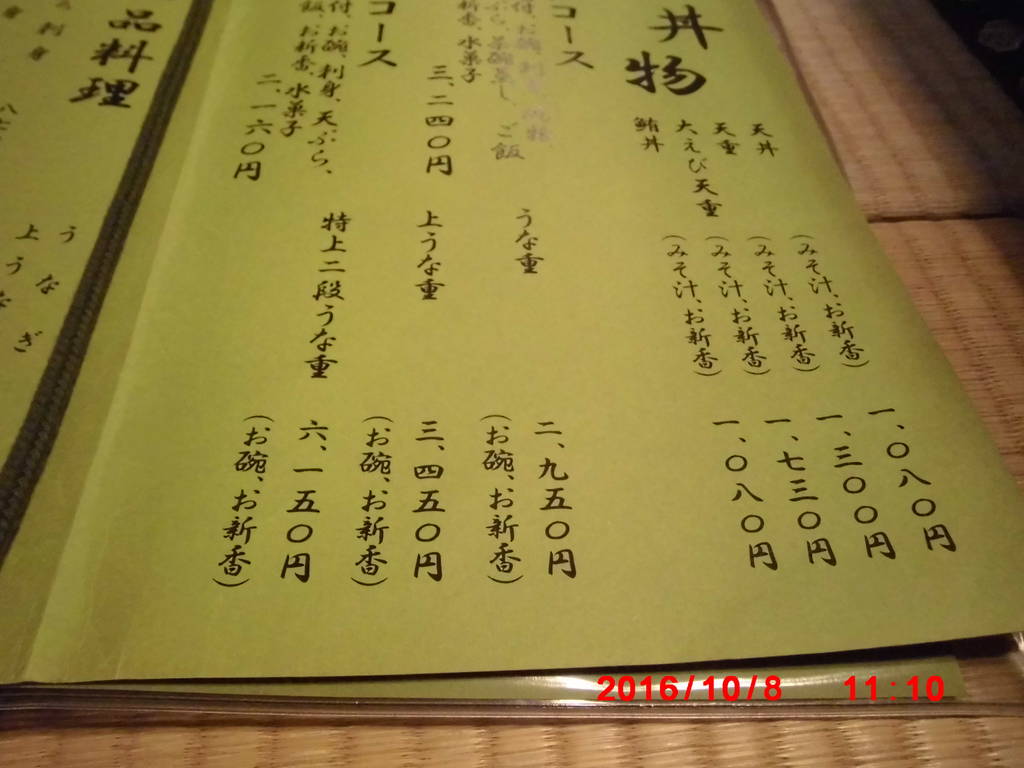 丼物
天丼 (みそ汁、お新香) 一、〇八〇円
天重 (みそ汁、お新香) 一、三〇〇円
大えび天重 (みそ汁、お新香) 一、七三〇円
鮪丼 (みそ汁、お新香) 一、〇八〇円
コース
ご飯
新香、水菓子
三、二四〇円
うな重 二、九五〇円
(お碗、お新香)
上うな重 三、四五〇円
(お碗、お新香)
特上二段うな重 六、一五〇円
(お碗、お新香)
コース
付、お碗、刺身、天ぷら、
飯、お新香、水菓子
二、一六〇円
品料理
刺身
うなぎ
上うな
2016/10/8 11:10